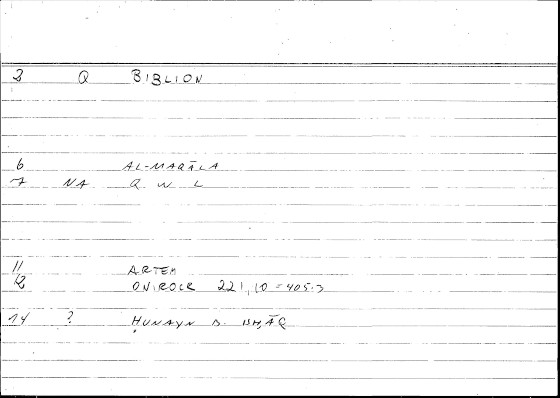 3 Q BIBLION
6 AL-MAQĀLA
7 NA Q W L
11 ARTEM
12 ONIROCR 221,10 = 405.3
14 ? ḤUNAYN B. ISḤĀQ